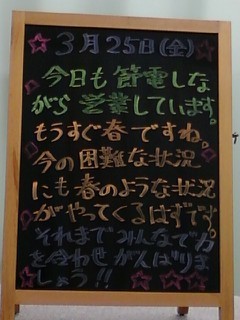 3月25日(金)
今日も節電しな
がら営業しています。
もうすぐ春ですね。
今の困難な状況
にも春のような状況
がやってくるはずです。
それまでみんなで力
を合わせがんばりま
しょう!!